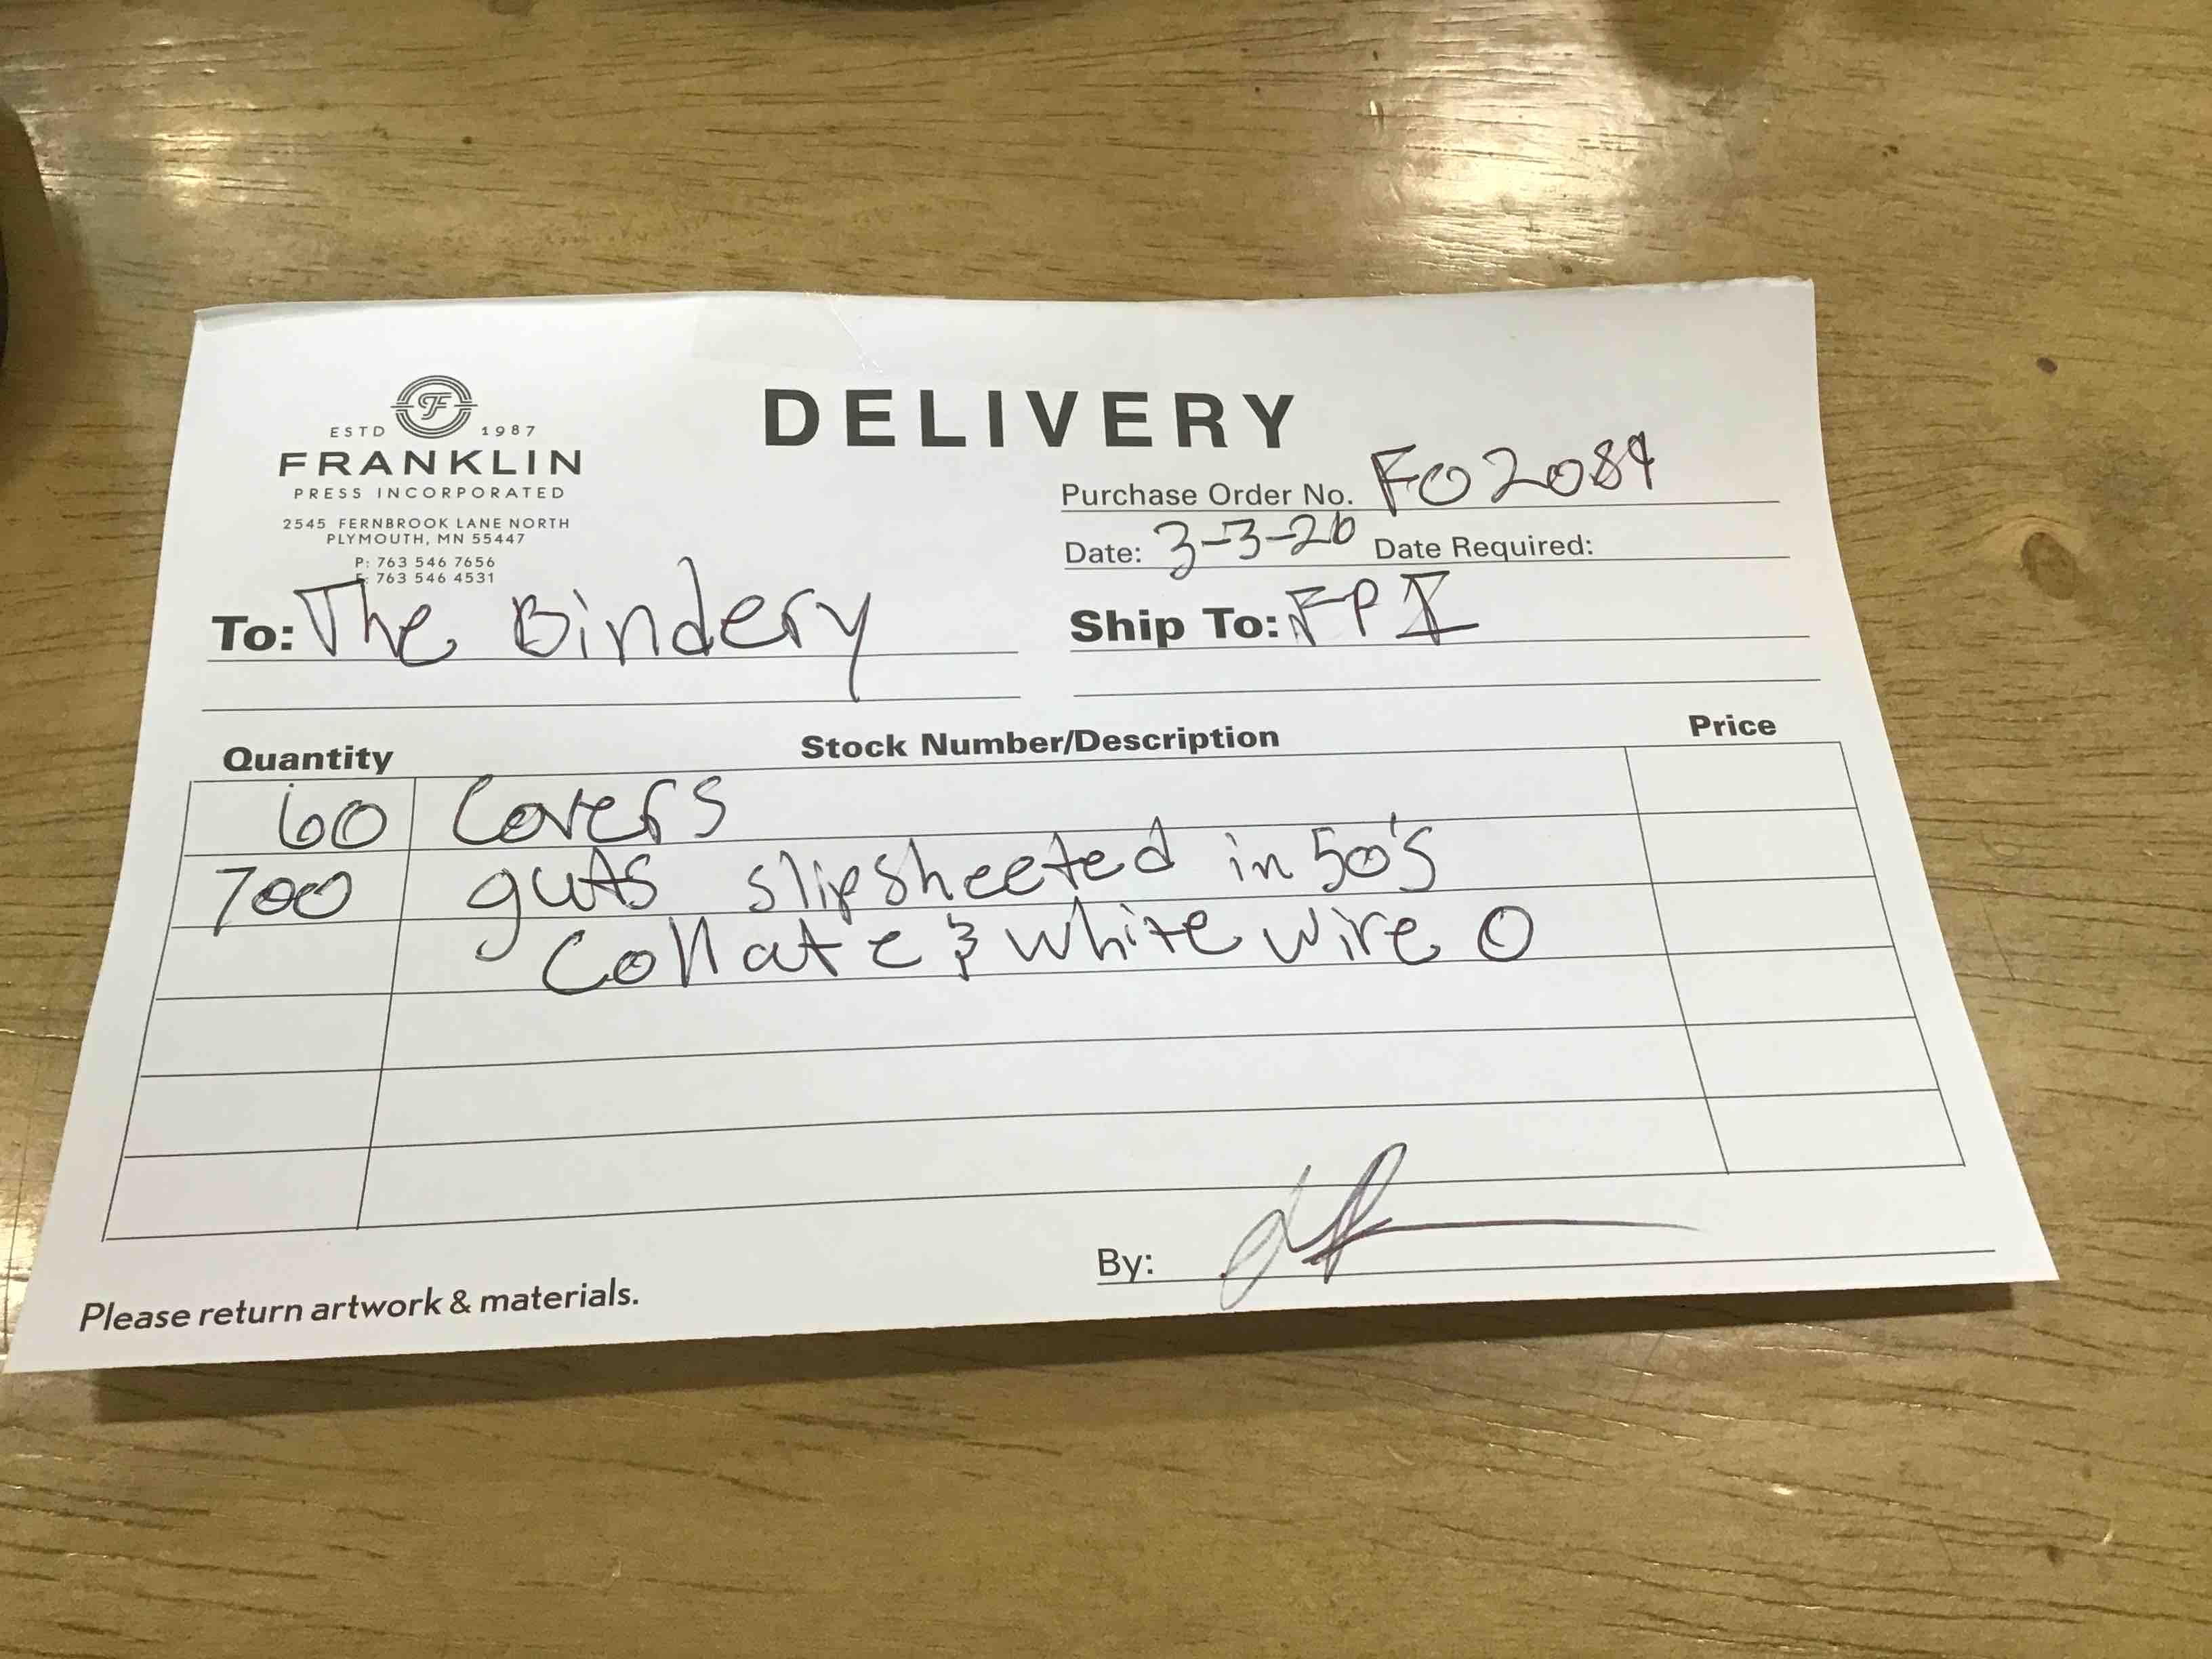 ESTD F 1987
FRANKLIN
PRESS INCORPORATED
2545 FERNBROOK LANE NORTH
PLYMOUTH, MN 55447
P: 763 546 7656
F: 763 546 4531
DELIVERY
Purchase Order No. FO2084
Date: 3-3-26 Date Required:
To: The Bindery
Ship To: FPI
Quantity Stock Number/Description Price
60 Covers
700 guts slipsheeted in 50's
Collate & white wire O
By:
Please return artwork & materials.